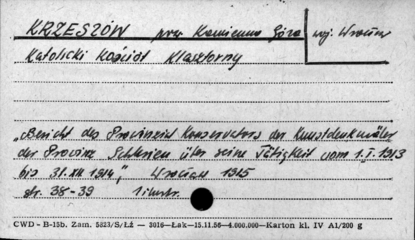 KRZESZÓW pow Kamienna Góra woj. Wrocław
Katolicki Kościół Klasztorny
„Bericht des Provinzial Konservators der Kunstdenkmäler
der Provinz Schlesien über seine Tätigkeit vom 1.I.1913
bis 31.XII 1914", Wrocław 1915
str. 38-39 1 ilustr.
CWD - B-15b. Zam. 5823/S/Łź — 3016—Łak—15.11.56—4.000.000—Karton kl. IV A1/200 g